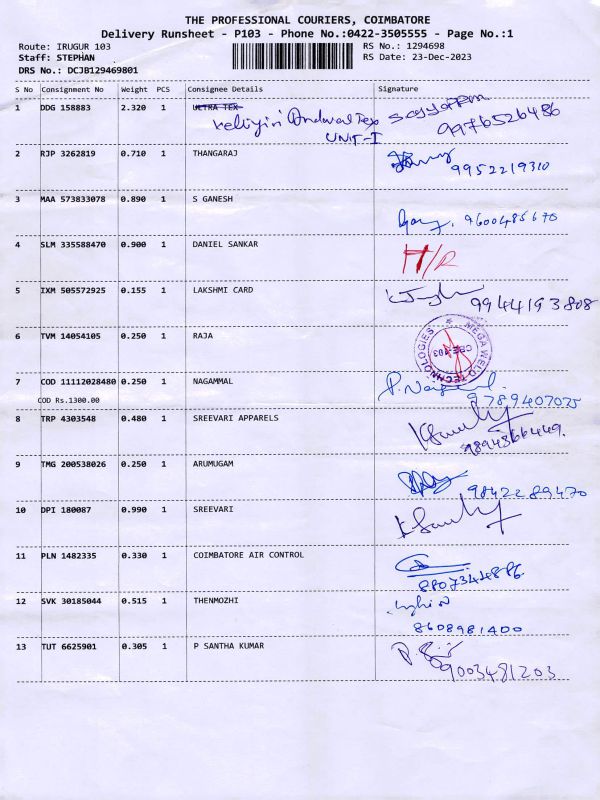 THE PROFESSIONAL COURIERS, COIMBATORE
Delivery Runsheet - P103 - Phone No.:0422-3505555 - Page No.:1
Route: IRUGUR 103 RS No.: 1294698
Staff: STEPHAN RS Date: 23-Dec-2023
DRS No.: DCJB129469801
S No Consignment No Weight PCS Consignee Details Signature
1 DDG 158883 2.320 1 ULTRA TEX
UNIT-I 9976526486
2 RJP 3262819 0.710 1 THANGARAJ
9952219310
3 MAA 573833078 0.890 1 S GANESH
9600485670
4 SLM 335588470 0.900 1 DANIEL SANKAR H/R
5 IXM 505572925 0.155 1 LAKSHMI CARD
9944193808
6 TVM 14054105 0.250 1 RAJA MEGA WELD TECHNOLOGIES CBE-103
7 COD 11112028480 0.250 1 NAGAMMAL
COD Rs.1300.00 9789407075
8 TRP 4303548 0.480 1 SREEVARI APPARELS
9894366449.
9 TMG 200538026 0.250 1 ARUMUGAM
9842289470
10 DPI 180087 0.990 1 SREEVARI
11 PLN 1482335 0.330 1 COIMBATORE AIR CONTROL
8807344886
12 SVK 30185044 0.515 1 THENMOZHI
8608981400
13 TUT 6625901 0.305 1 P SANTHA KUMAR
9003481203